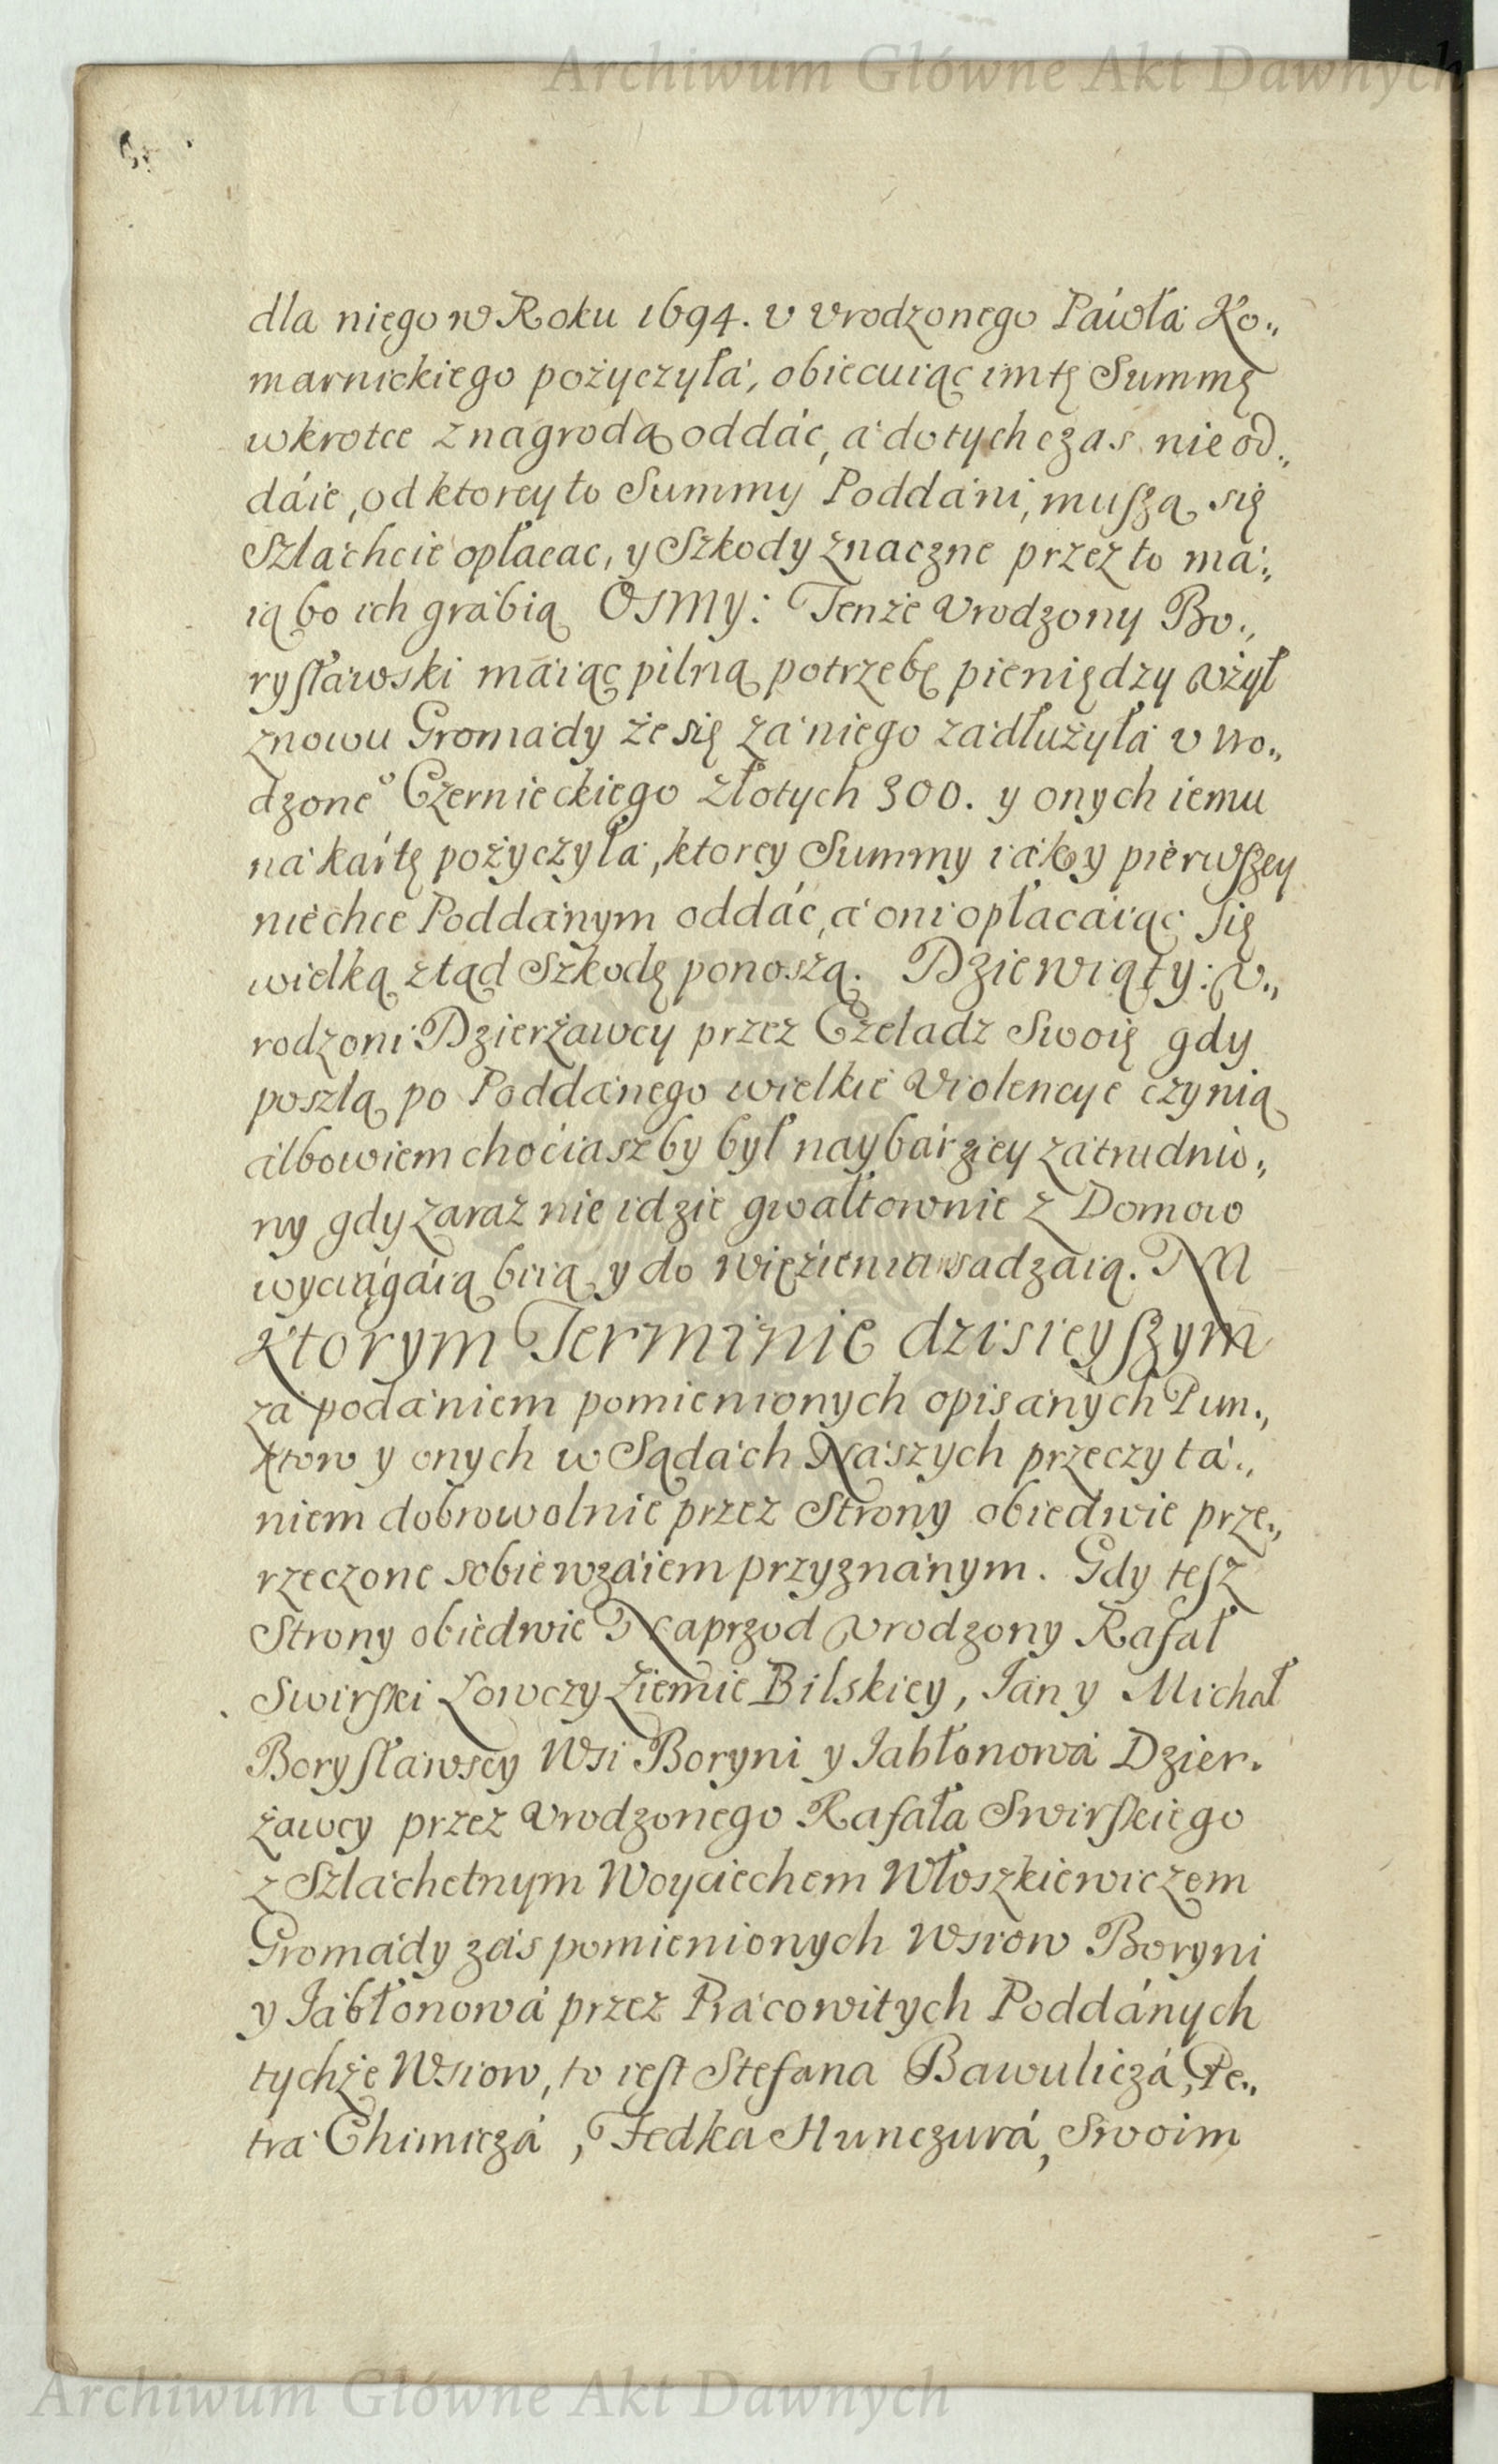 Archiwum Główne Akt Dawnych
dla niego w Roku 1694. v vrodzonego Páwła Ko„
marnickiego pożyczyłá, obiecuiąc im tę Summę
wkrotce z nagrodą oddáć, á dotychczas nie od„
dáie, od ktorey to Summy Poddáni, muszą się
Szláchcie opłacac, y Szkody znaczne przez to má„
ią bo ich grábią Osmy: Tenże Vrodzony Bo„
rysłáwski máiąc pilną potrzebę pieniędzy vżył
znowu Gromády że się zá niego zádłużyłá v vro„
dzoneº Czernieckiego złotych 300. y onych iemu
ná kártę pożyczyłá, ktorey Summy iák y pierwszey
niechce Poddánym oddáć, á oni opłacáiąc się
wielką ztąd Szkodę ponoszą. Dziewiąty: V„
rodzoni Dzierżawcy przez Czeladz Swoię gdy
poszlą po Poddánego wielkie Violencye czynią
álbowiem chociaszby był naybárziey zátrudnio„
ny gdy zaraz nie idzie gwałtownie z Domow
wyciągáią biią y do więzienia wsadzáią. Ná
Ktorym Terminie dzisieyszym
zá podániem pomienionych opisánych Pun„
ktow y onych w Sądách Nászych przeczytá„
niem dobrowolnie przez Strony obiedwie prze„
rzeczone sobie wzáiem przyznánym. Gdy tesz
Strony obiedwie Naprzod Vrodzony Rafał
Swirski Łowczy Ziemie Bilskiey, Ján y Michał
Borysłáwscy Wsi Boryni y Jabłonowá Dzier„
żawcy przez Vrodzonego Rafałá Swirskiego
z Szláchetnym Woyciechem Włoszkiewiczem
Gromády zás pomienionych Wsiow Boryni
y Jábłonowá przez Prácowitych Poddánych
tychże Wsiow, to iest Stefana Bawuliczá, Pe„
trá Chimiczá, Fedka Hunczurá, Swoim
Archiwum Główne Akt Dawnych